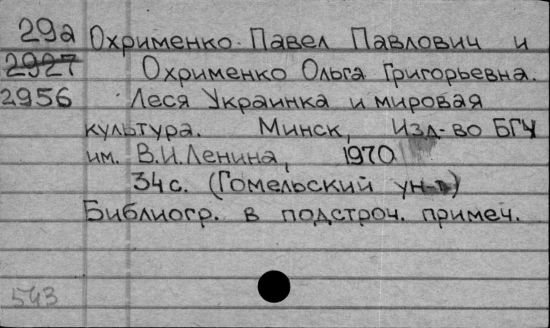 29а Охрименко Павел Павлович и
2927 Охрименко Ольга Григорьевна.
2956 Леся Украинка и мировая
культура. Минск, Изд-во БГУ
им. В.И.Ленина, 1970
34 с. (Гомельский ун-т)
Библиогр. в подстроч. примеч.
543